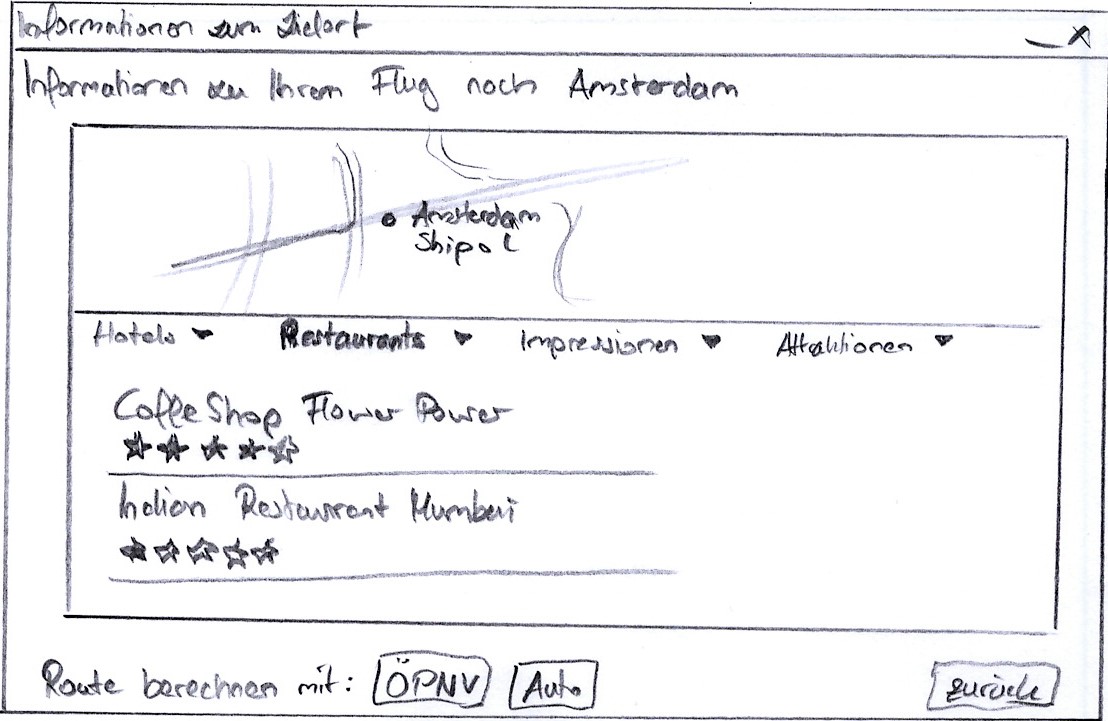 Informationen zum Zielort
Informationen zu Ihrem Flug nach Amsterdam
Amsterdam
Shipol
Hotels Restaurants Impressionen Attraktionen
CoffeShop Flower Power
Indian Restaurant Mumbai
Route berechnen mit: ÖPNV Auto zurück